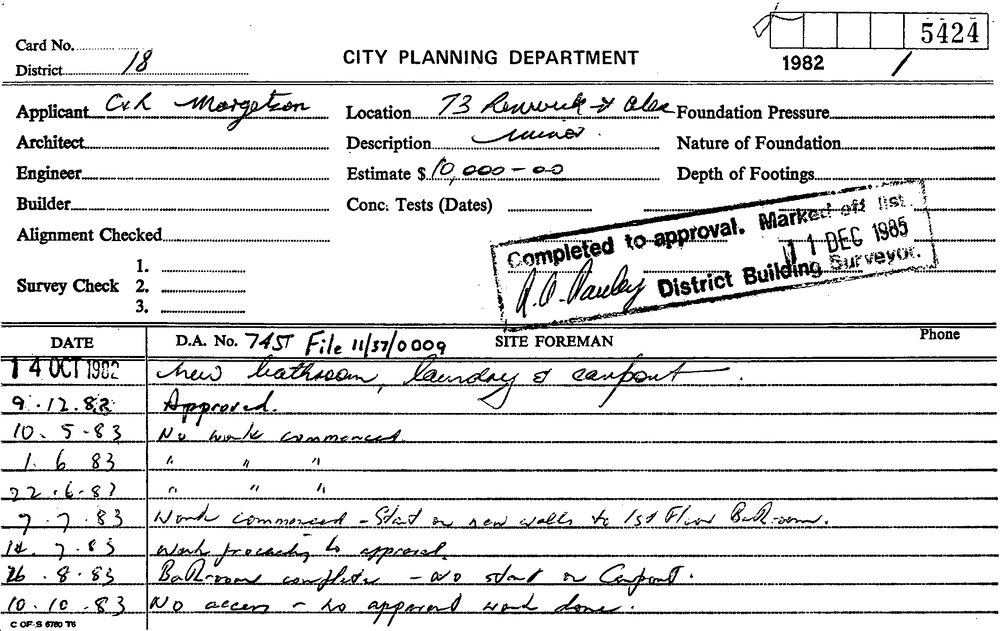 5424
Card No.
CITY PLANNING DEPARTMENT
District 18
1982 1
Applicant C & R Margetson Location 73 Renwick St Alex Foundation Pressure
Architect Description minor Nature of Foundation
Engineer Estimate $ 10,000-00 Depth of Footings
Builder Conc. Tests (Dates)
Alignment Checked
Completed to approval. Marked off list.
11 DEC 1985
District Building Surveyor.
1.
Survey Check 2.
3.
DATE D.A. No. 745T File 11/57/0009 SITE FOREMAN Phone
14 OCT 1982 New bathroom, laundry & carport.
9.12.82 Approved.
10.5.83 No work commenced
1.6.83 " " "
22.6.83 " " "
7.7.83 Work commenced - Start on new walls to 1st Floor Bathroom.
14.7.83 Work proceeding to approval.
26.8.83 Bathroom complete - No start on Carport.
10.10.83 No access - no apparent work done.
C OF S 6760 T6